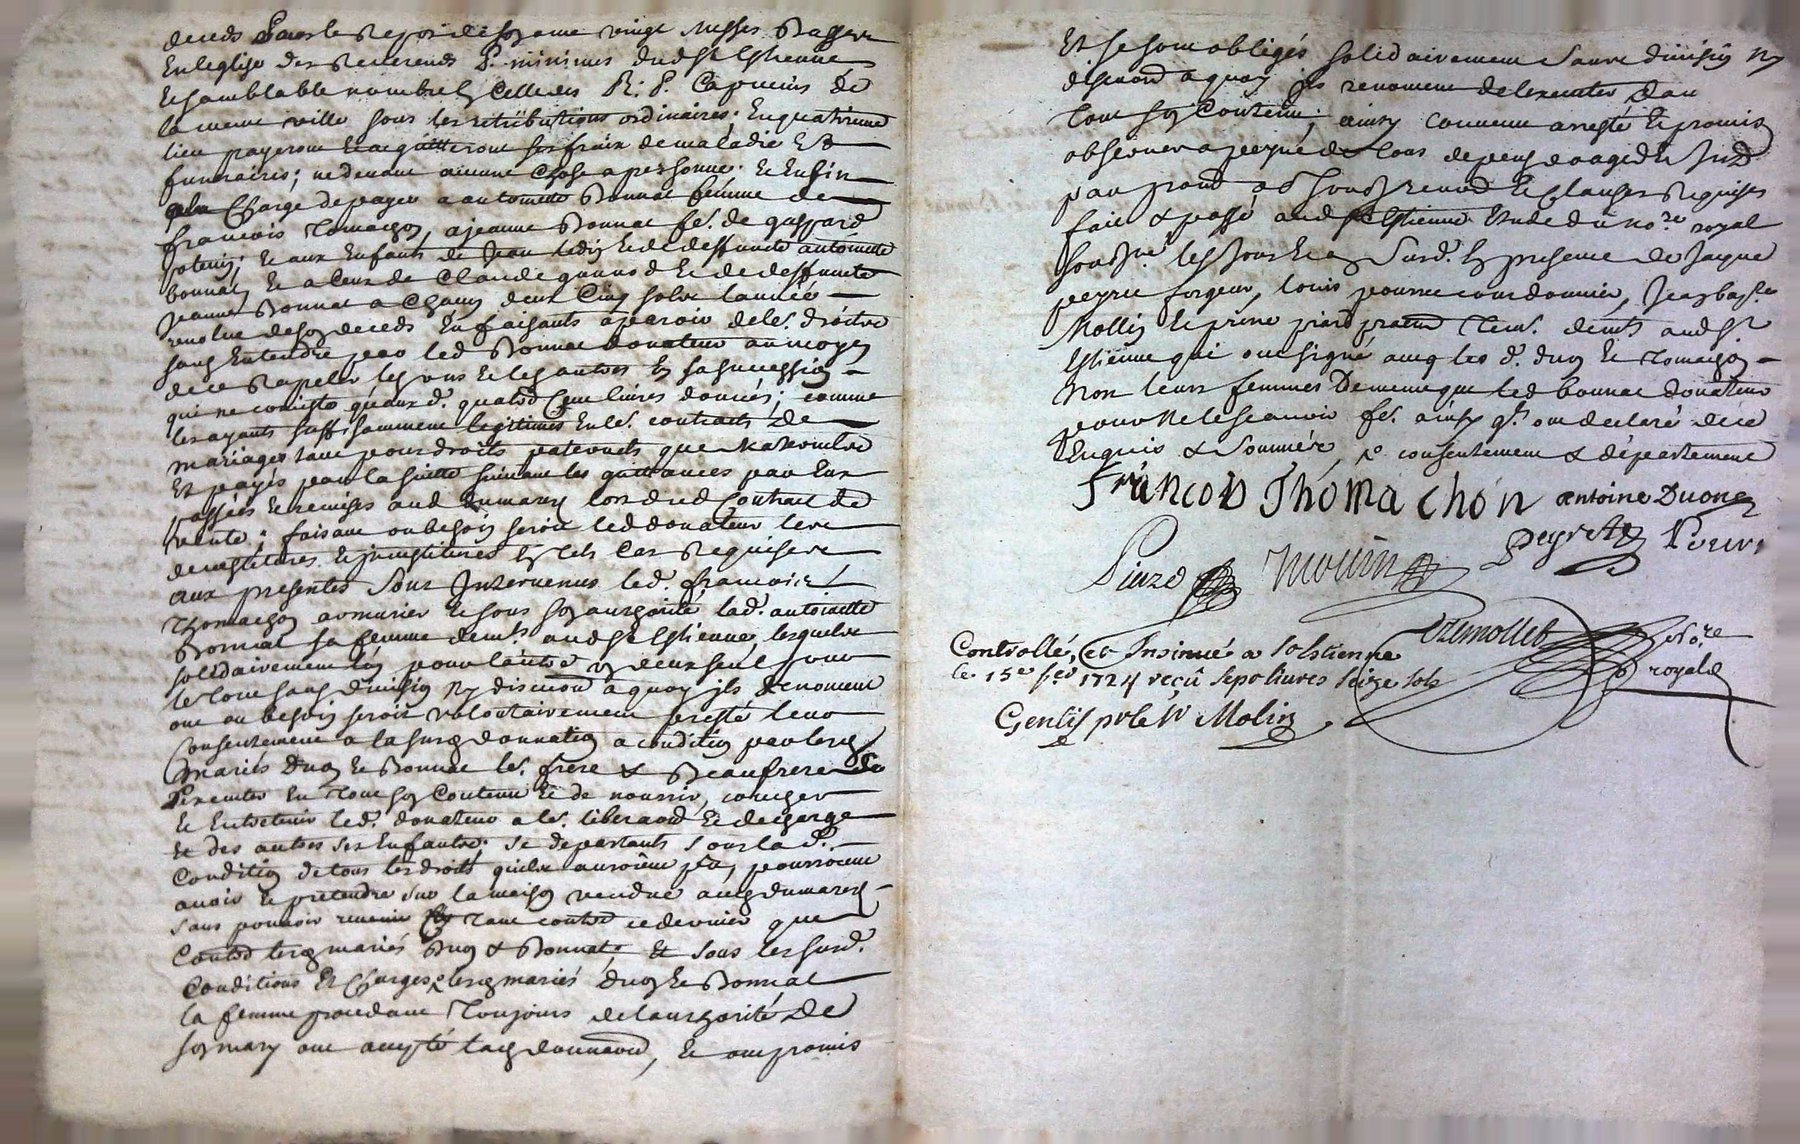 deceds pour le repos de son ame vingt messes basses
En leglise des Reverends P. minimes dud St Estienne
Et semblable nombre En Celle des R. P. Capucins de
la meme ville sous les retributions ordinaires; En quatrieme
lieu payeront Et acquitteront ses fraix de maladie Et
funeraires; ne devant aucune chose a personne. Et Enfin
a la Charge de payer a antoinette Bonnat femme de
francois Thomachon, a jeanne Bonnat fe. de gaspard
; Et aux Enfants de Jean Et de deffuncte antoinette
bonnat, Et a Ceux de Claude Et de deffuncte
Jeanne Bonnat a Chacun deux Cinq sols lannée
revolue de son deceds En faisants aparoir de le. droitre
sans Entendre par led Bonnat donateur au moyen
de ce Rapeler les uns Et les autres En sa succession
qui ne consiste qu'aux d. quatre Cent livres donnés; comme
les ayants suffisamment legitimés En le. contracts de
mariages tant pour droits paternels que maternels
Et payés par la suitte suivant les quittances par Eux
passées Et remises aud Dumarest lors dud Contract de
vente; faisant ou besoin seroit led donateur leve
devestitures Et investitures En tels cas Requises
aux presentes sont Intervenus led. francois
Thomachon armurier Et sous son authorité lad. antoinette
Bonnat sa femme demts. aud St Estienne, lesquels
solidairement lun pour lautre un deux seul pour
le tout sans division ny discution a quoy ils Renoncent
ont au besoin seroit volontairement presté leur
Consentement a la susd donnation a condition par lesd
mariés Duon Et Bonnat le. frere & Beaufrere de
Lexecuter En tout son Contenu Et de nourrir, coucher
Et Entretenir led. donateur a le. liberaon Et decharge
Et des autres ses Enfants; se departants sous lad.
Condition de tous les droits quils auroient pu, pourroient
avoir Et pretendre sur la maison vendue aud Dumarest
sans pouvoir revenir tant contre ce dernier que
Contre lesd mariés Duon & Bonnat; Et sous les susd.
Conditions Et Charges, lesd mariés Duon Et Bonnat
la femme procedant Toujours de lauthorité de
son mary ont accepté lad donnaon, Et ont promis
Et se sont obligés solidairement sans division ny
discution a quoy ils renoncent de lexecuter dans
tout son Contenu; ainsy convenu arresté Et promis
observer a peyne de tous depens domages Et Intz
par & Clauses Requises
fait & passé aud St Estienne Etude du nore. royal
soussné. les jour Et an Susd. En presence de Jaque
peyrie forgeur, louis pourret cordonnier, Jean bapte
Mollin Et prime piard Tem. demts aud St
Estienne qui ont signé avec les d. duon Et Tomachon
Non leurs femmes De meme que led bonnat donateur
pour ne le scavoir fe. ainsy qls. ont declaré de ce
Enquis & Sommés, consentement & departement
Francois Thoma chon antoine Duon
Piard Mollin Peyret Pourret
Tremollet nore
royal
Controllé, et Insinué a St Estienne
le 15e fev 1724 reçu sept livres seize sols
Gentil pr le Sr Molin